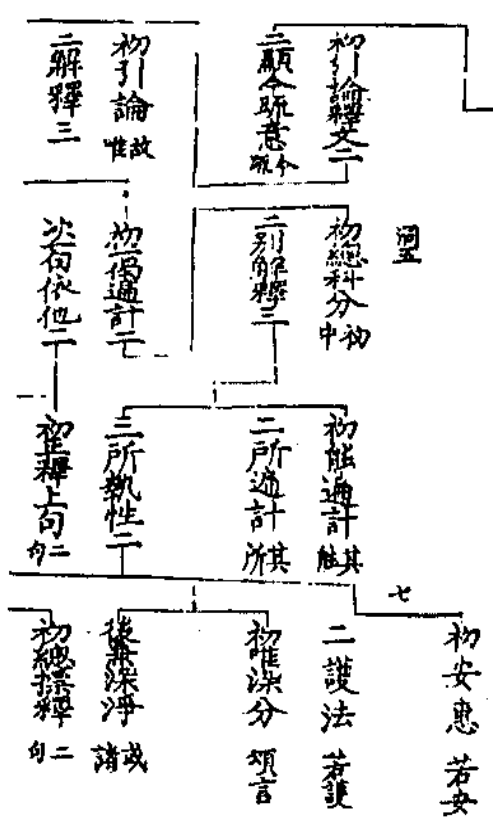 初引論釋文二
二顯今疏意 今疏
初引論 故唯
二解釋三
洞五
初總科分 初中
二別解釋三
初一偈遍計二
次一句依他二
初能遍計 其能
二所遍計 其所
三所執性二
初正釋上句 二句
七
初安惠 若安
二護法 若護
初唯染分 頌言
後兼染淨 或諸
初總標釋 二句